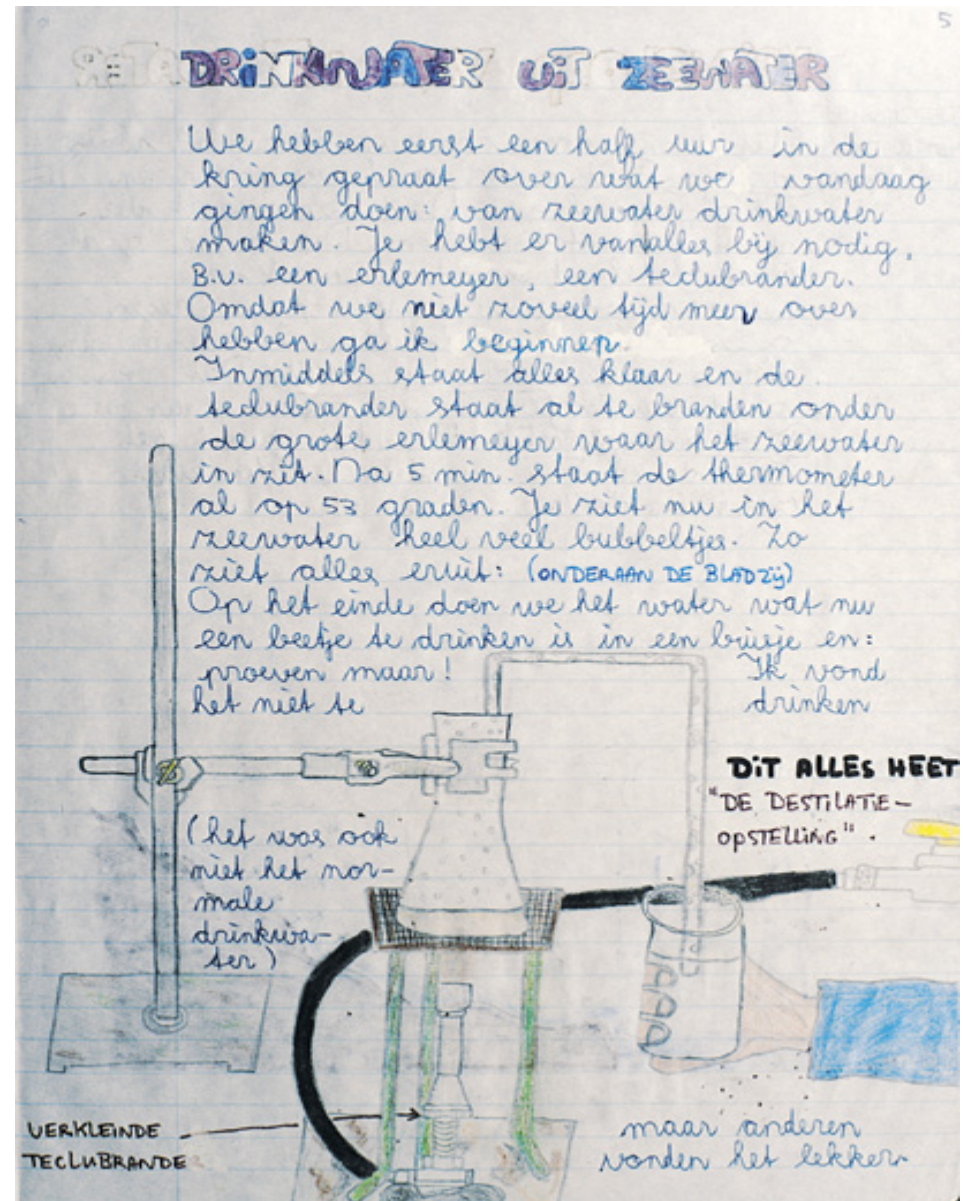 5
DRINKWATER UIT ZEEWATER
We hebben eerst een half uur in de
kring gepraat over wat we vandaag
gingen doen: van zeewater drinkwater
maken. Je hebt er vanalles bij nodig,
B.v. een erlemeyer, een teclubrander.
Omdat we niet zoveel tijd meer over
hebben ga ik beginnen.
Inmiddels staat alles klaar en de
teclubrander staat al te branden onder
de grote erlemeyer waar het zeewater
in zit. Na 5 min. staat de thermometer
al op 53 graden. Je ziet nu in het
zeewater heel veel bubbeltjes. Zo
ziet alles eruit: (ONDERAAN DE BLADZIJ)
Op het einde doen we het water wat nu
een beetje te drinken is in een buisje en:
proeven maar! Ik vond
het niet te drinken
(het was ook
niet het nor-
male
drinkwa-
ter)
DIT ALLES HEET
"DE DESTILATIE-
OPSTELLING".
VERKLEINDE
TECLUBRANDE
maar anderen
vonden het lekker